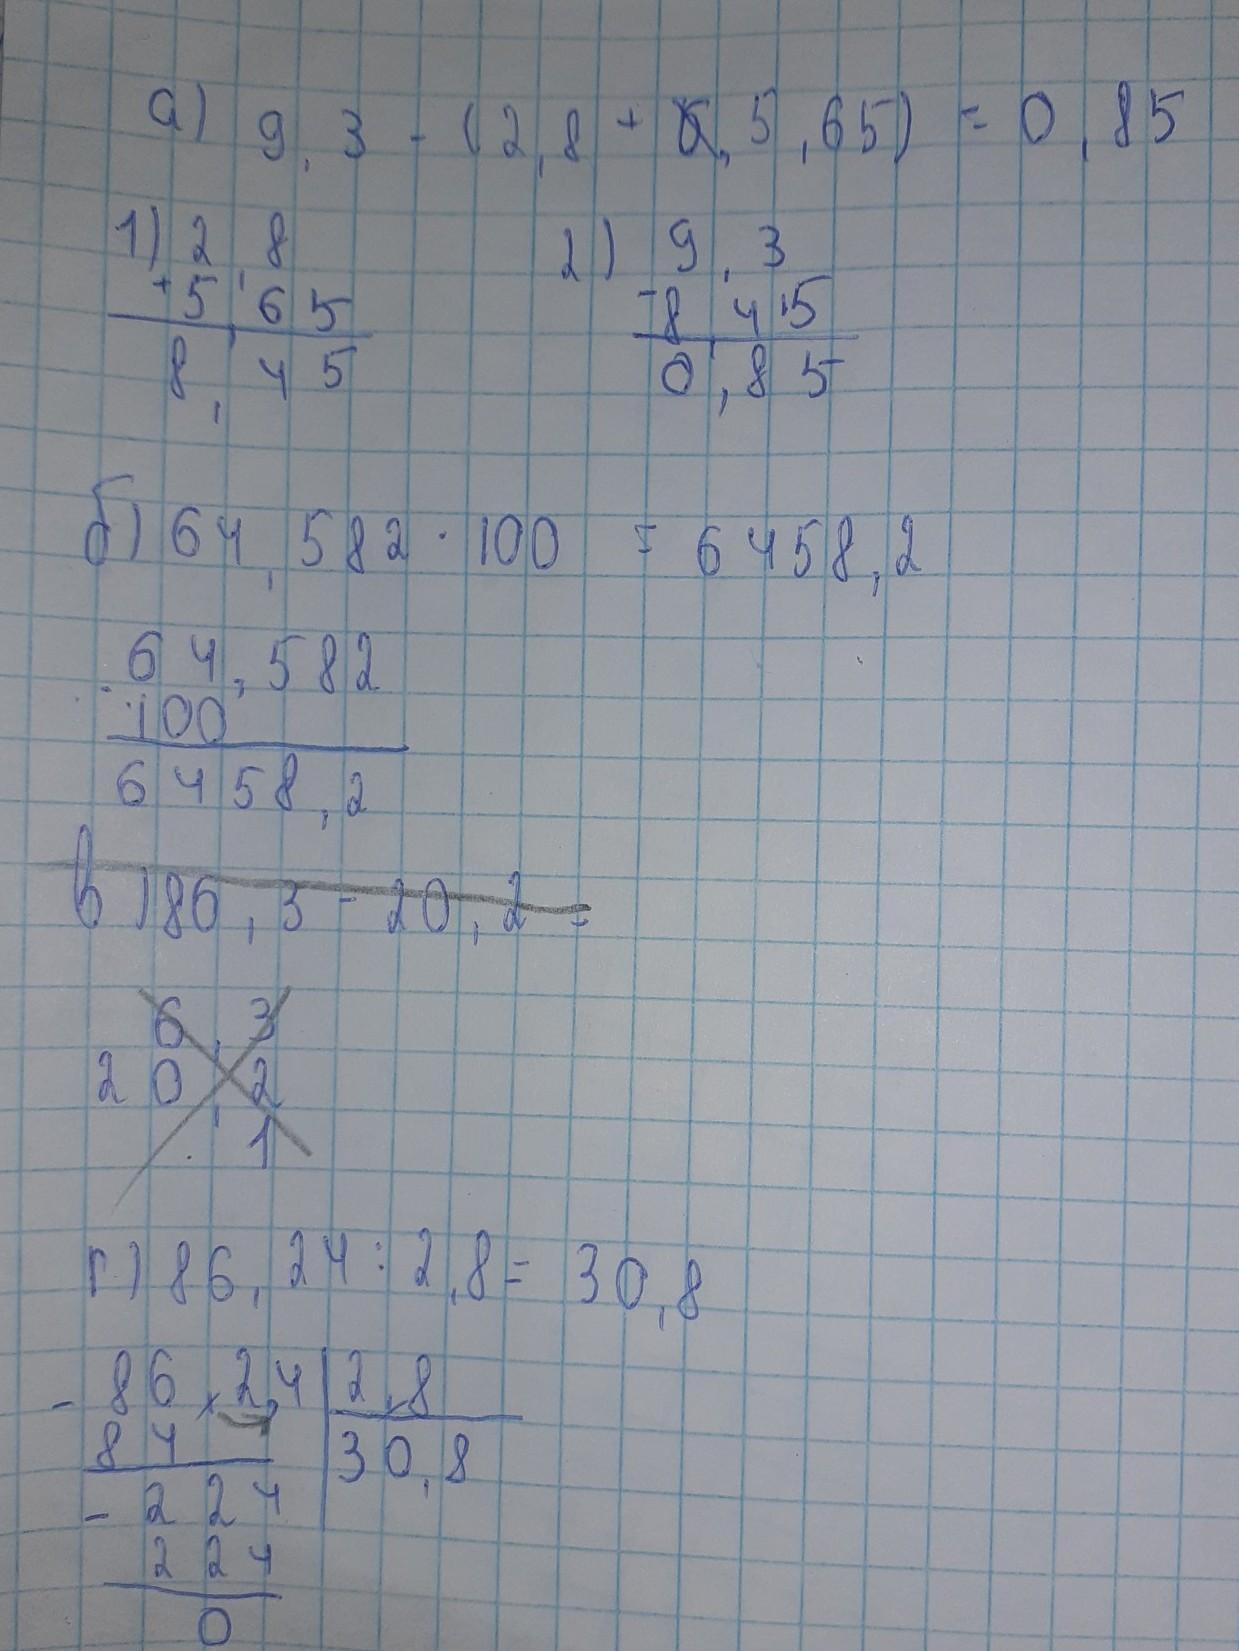 а) 9,3 - (2,8 + 5,65) = 0,85
1) 2 8 2) 9,3
+5,65 -8,45
8,45 0,85
б) 64,582 · 100 = 6458,2
64,582
·100
6458,2
в) 86,3 - 20,2 =
6,3
20,2
1
г) 86,24 : 2,8 = 30,8
- 86,2,4 | 2,8
84 30,8
- 224
224
0